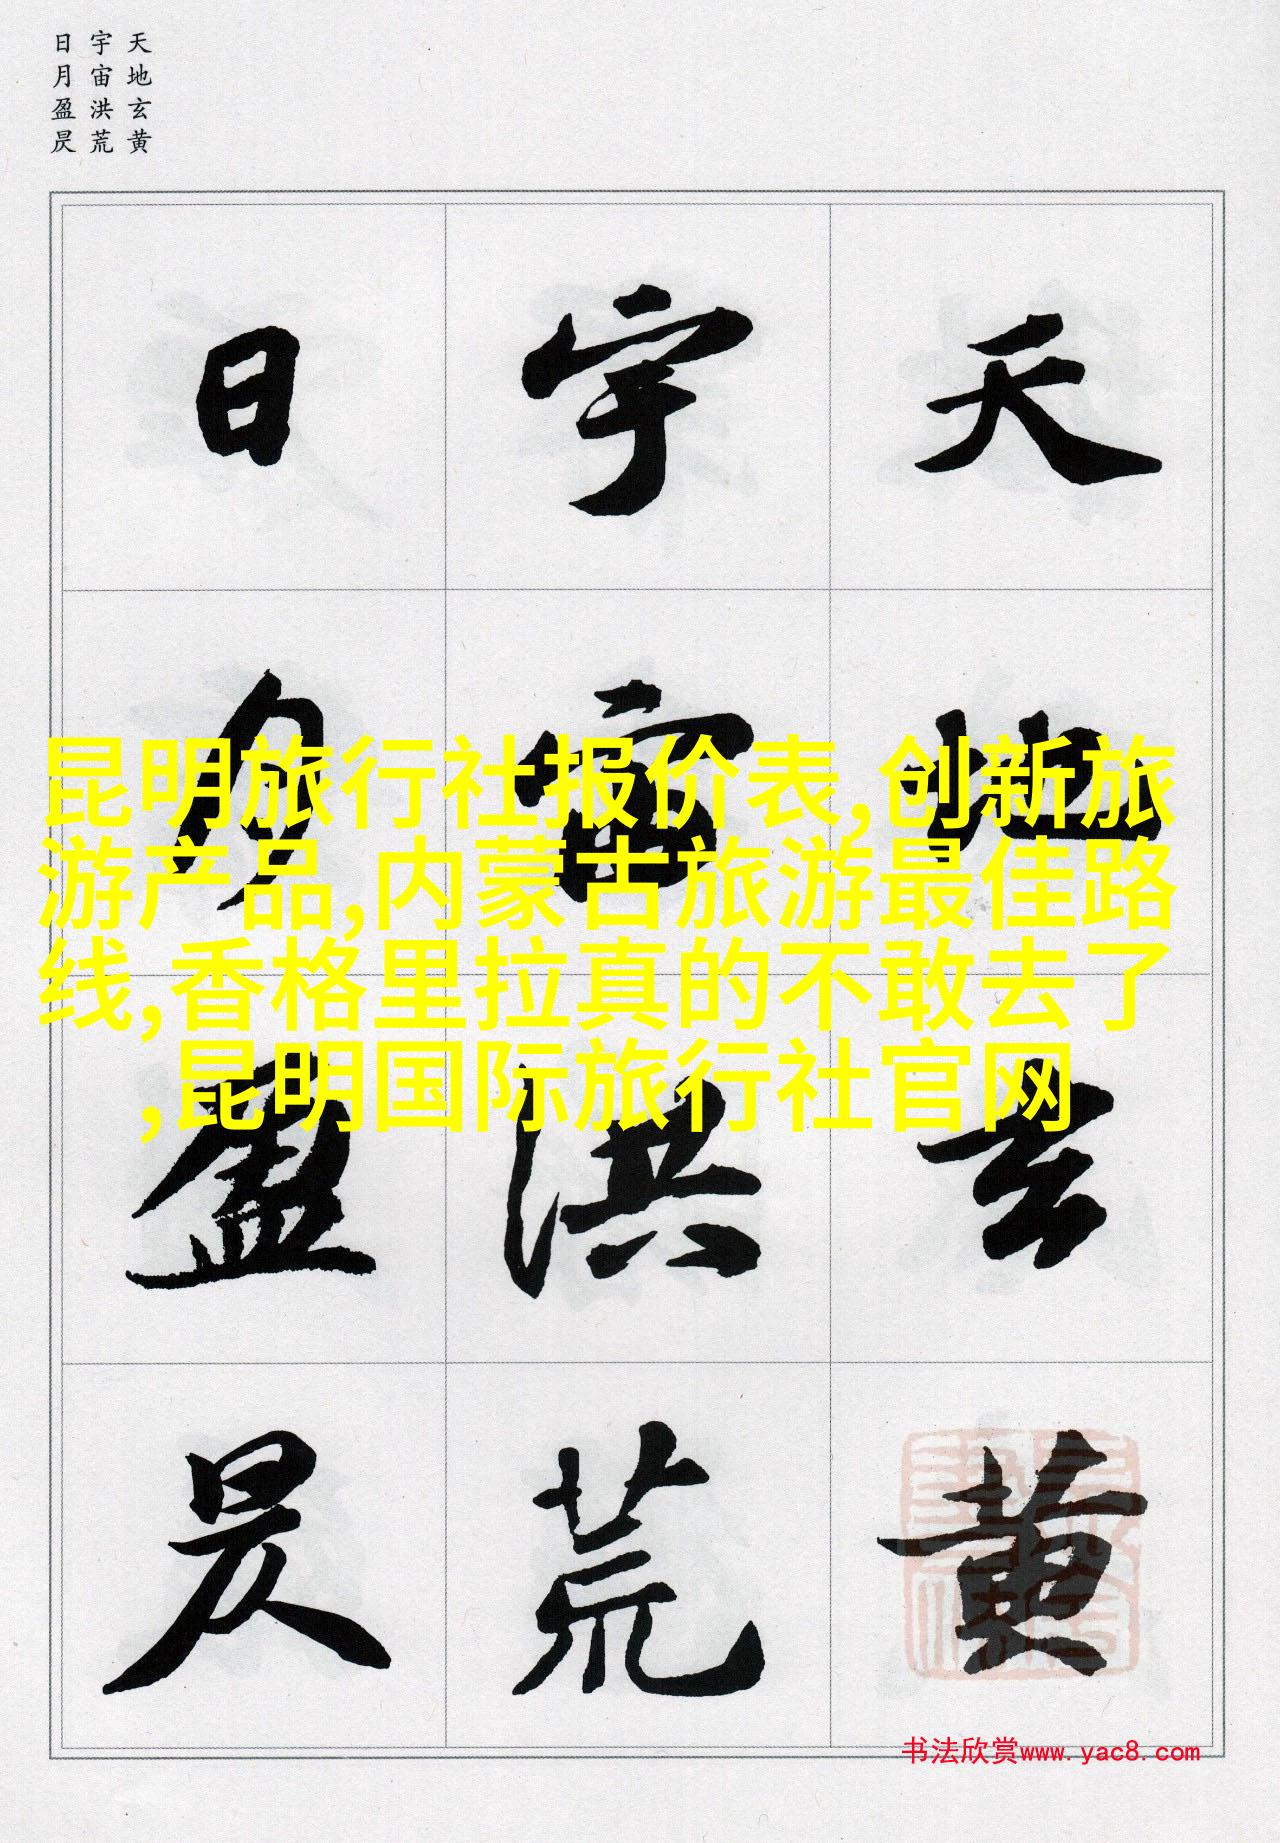 天地玄黄
宇宙洪荒
日月盈昃
天地玄黄
宇宙洪荒
日月盈昃
昆明旅行社报价表,创新旅
游产品,内蒙古旅游最佳路
线,香格里拉真的不敢去了
,昆明国际旅行社官网
书法欣赏www.yac8.com